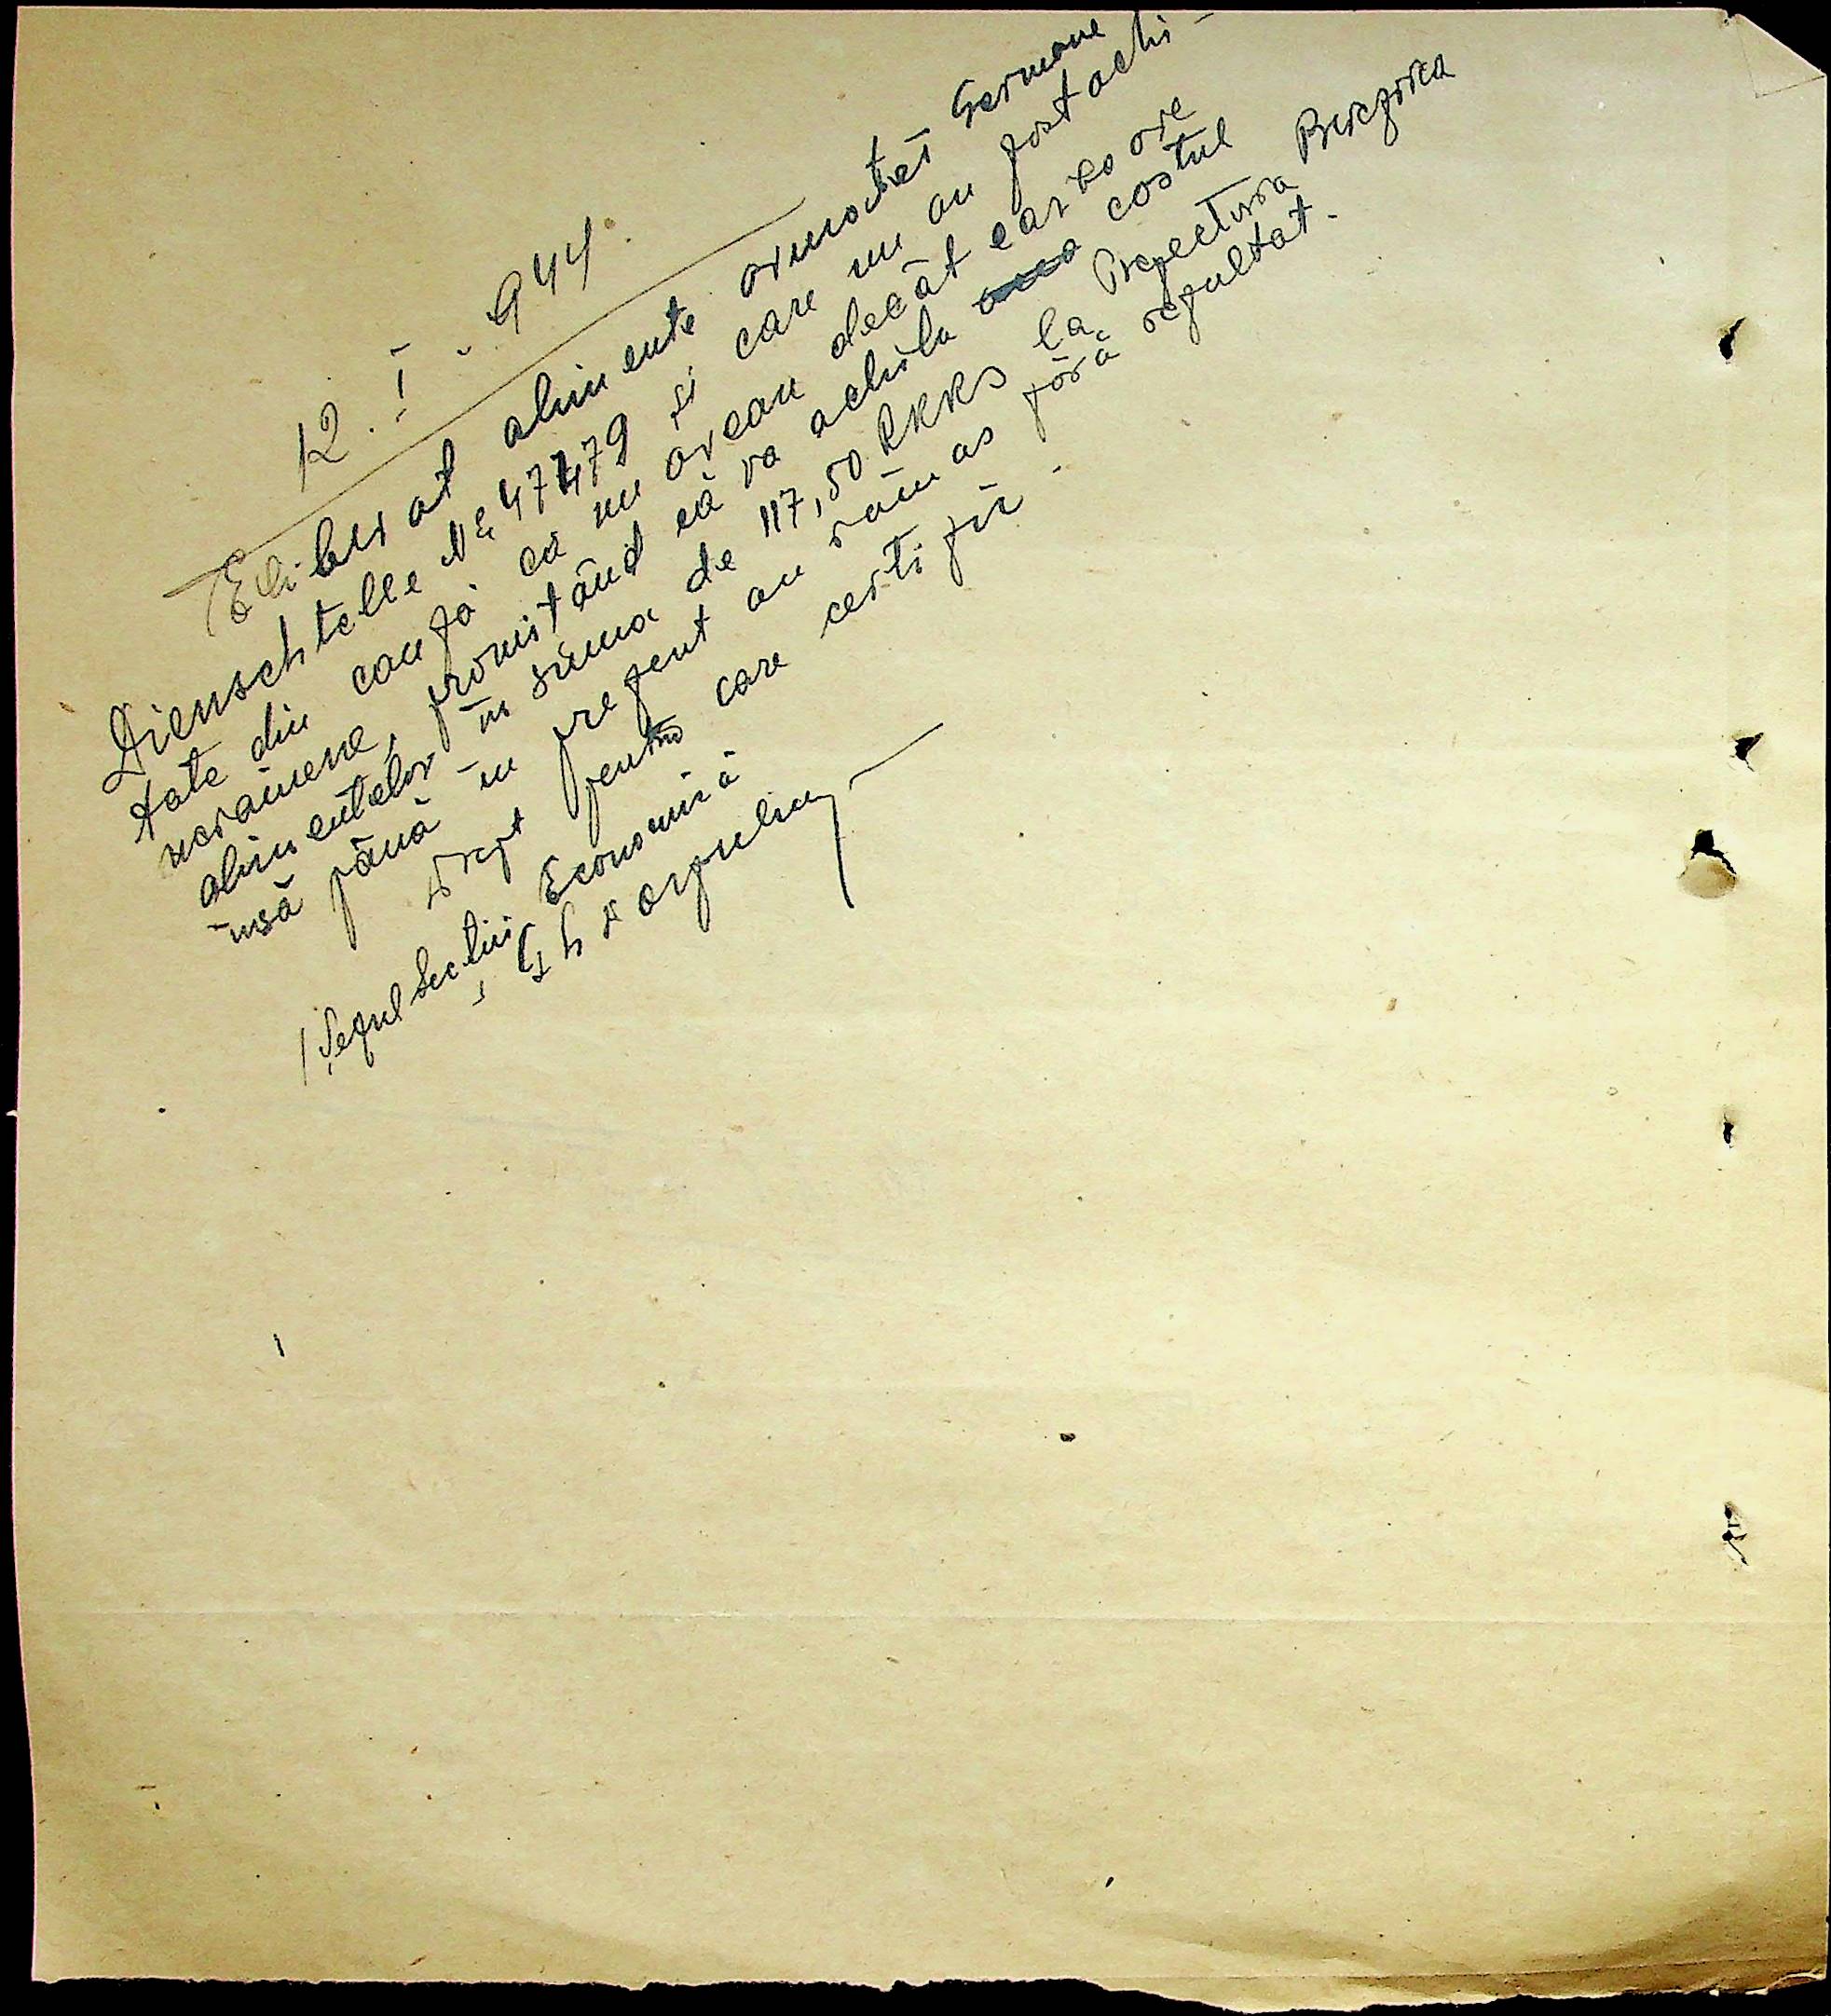 12. I. 944.
Eliberat alimente armatei Germane
Dienschtelle № 47479 și care nu au fost achi-
tate din cauză că nu aveau decât carboave
ucrainene, promițând că va achita costul
alimentelor în suma de 117,50 RKKS la Prefectura Berezovca
însă până în prezent au rămas fără rezultat.
Drept pentru care certific.
Șeful Secției Economică